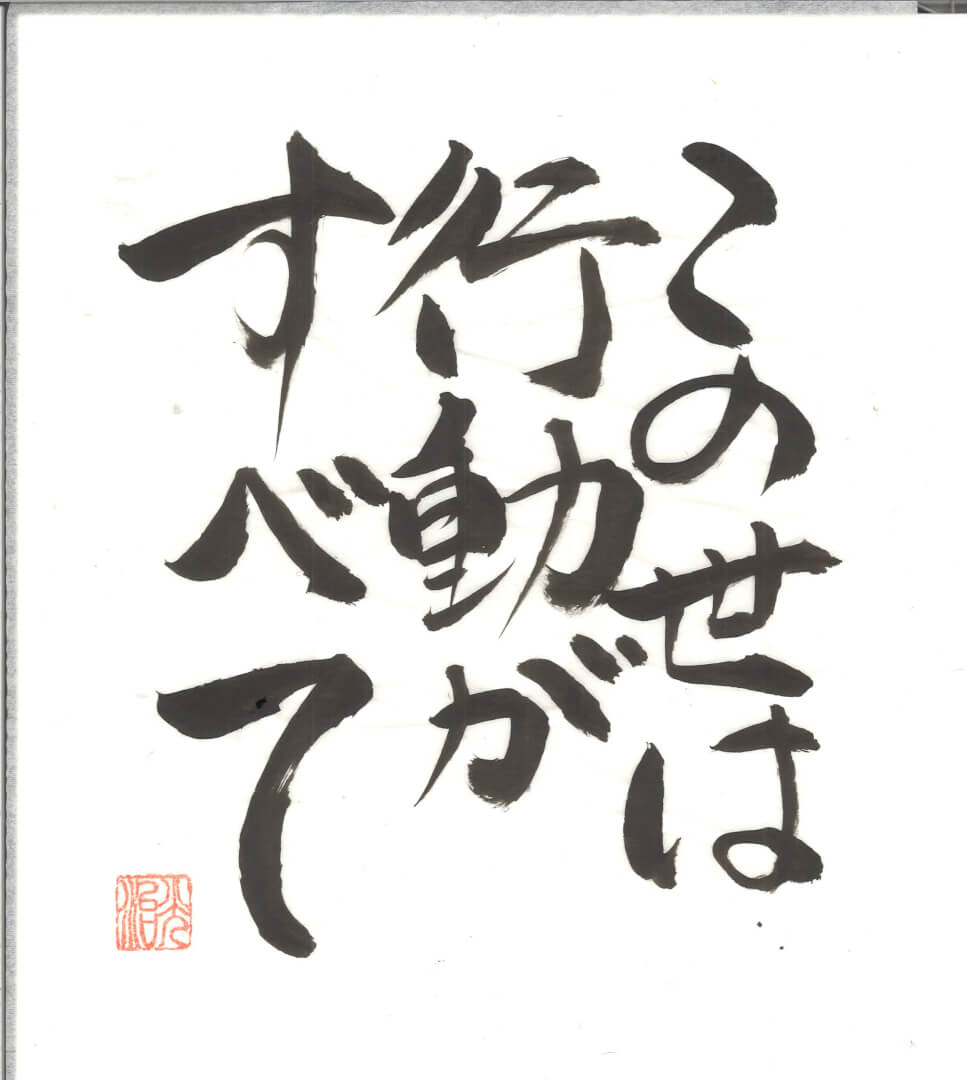 この世は
行動が
すべて